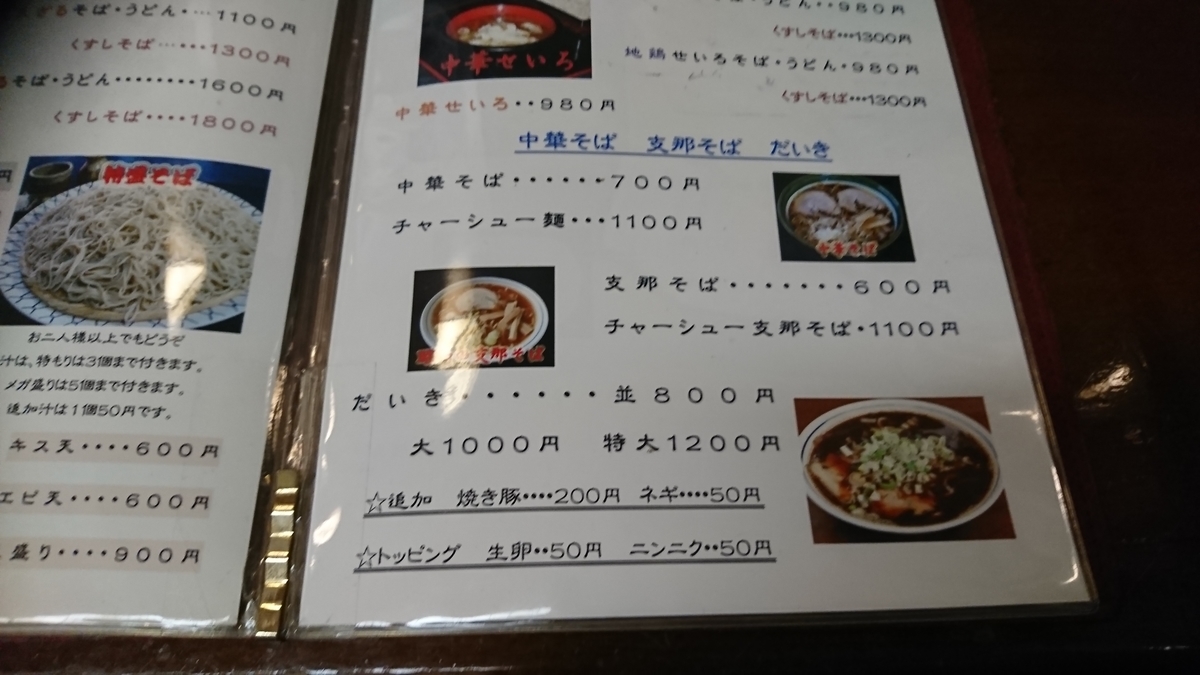 ざるそば・うどん・…1100円
くすしそば…・・・1300円
そば・うどん・・・・・・・・1600円
くすしそば・・・・1800円
円
特盛そば
お二人様以上でもどうぞ
汁は、特もりは3個まで付きます。
メガ盛りは5個まで付きます。
追加汁は1個50円です。
キス天・・・・600円
エビ天・・・・600円
盛り・・・・900円
中華せいろ
中華せいろ・・980円
そば・うどん・・980円
くすしそば・・・1300円
地鶏せいろそば・うどん・980円
くすしそば・・・1300円
中華そば 支那そば だいき
中華そば・・・・・・700円
チャーシュー麺・・・1100円
中華そば
支那そば・・・・・・・600円
チャーシュー支那そば・1100円
支那そば
だいき・・・・・・並800円
大1000円 特大1200円
☆追加 焼き豚・・・・200円 ネギ・・・・50円
☆トッピング 生卵・・50円 ニンニク・・50円